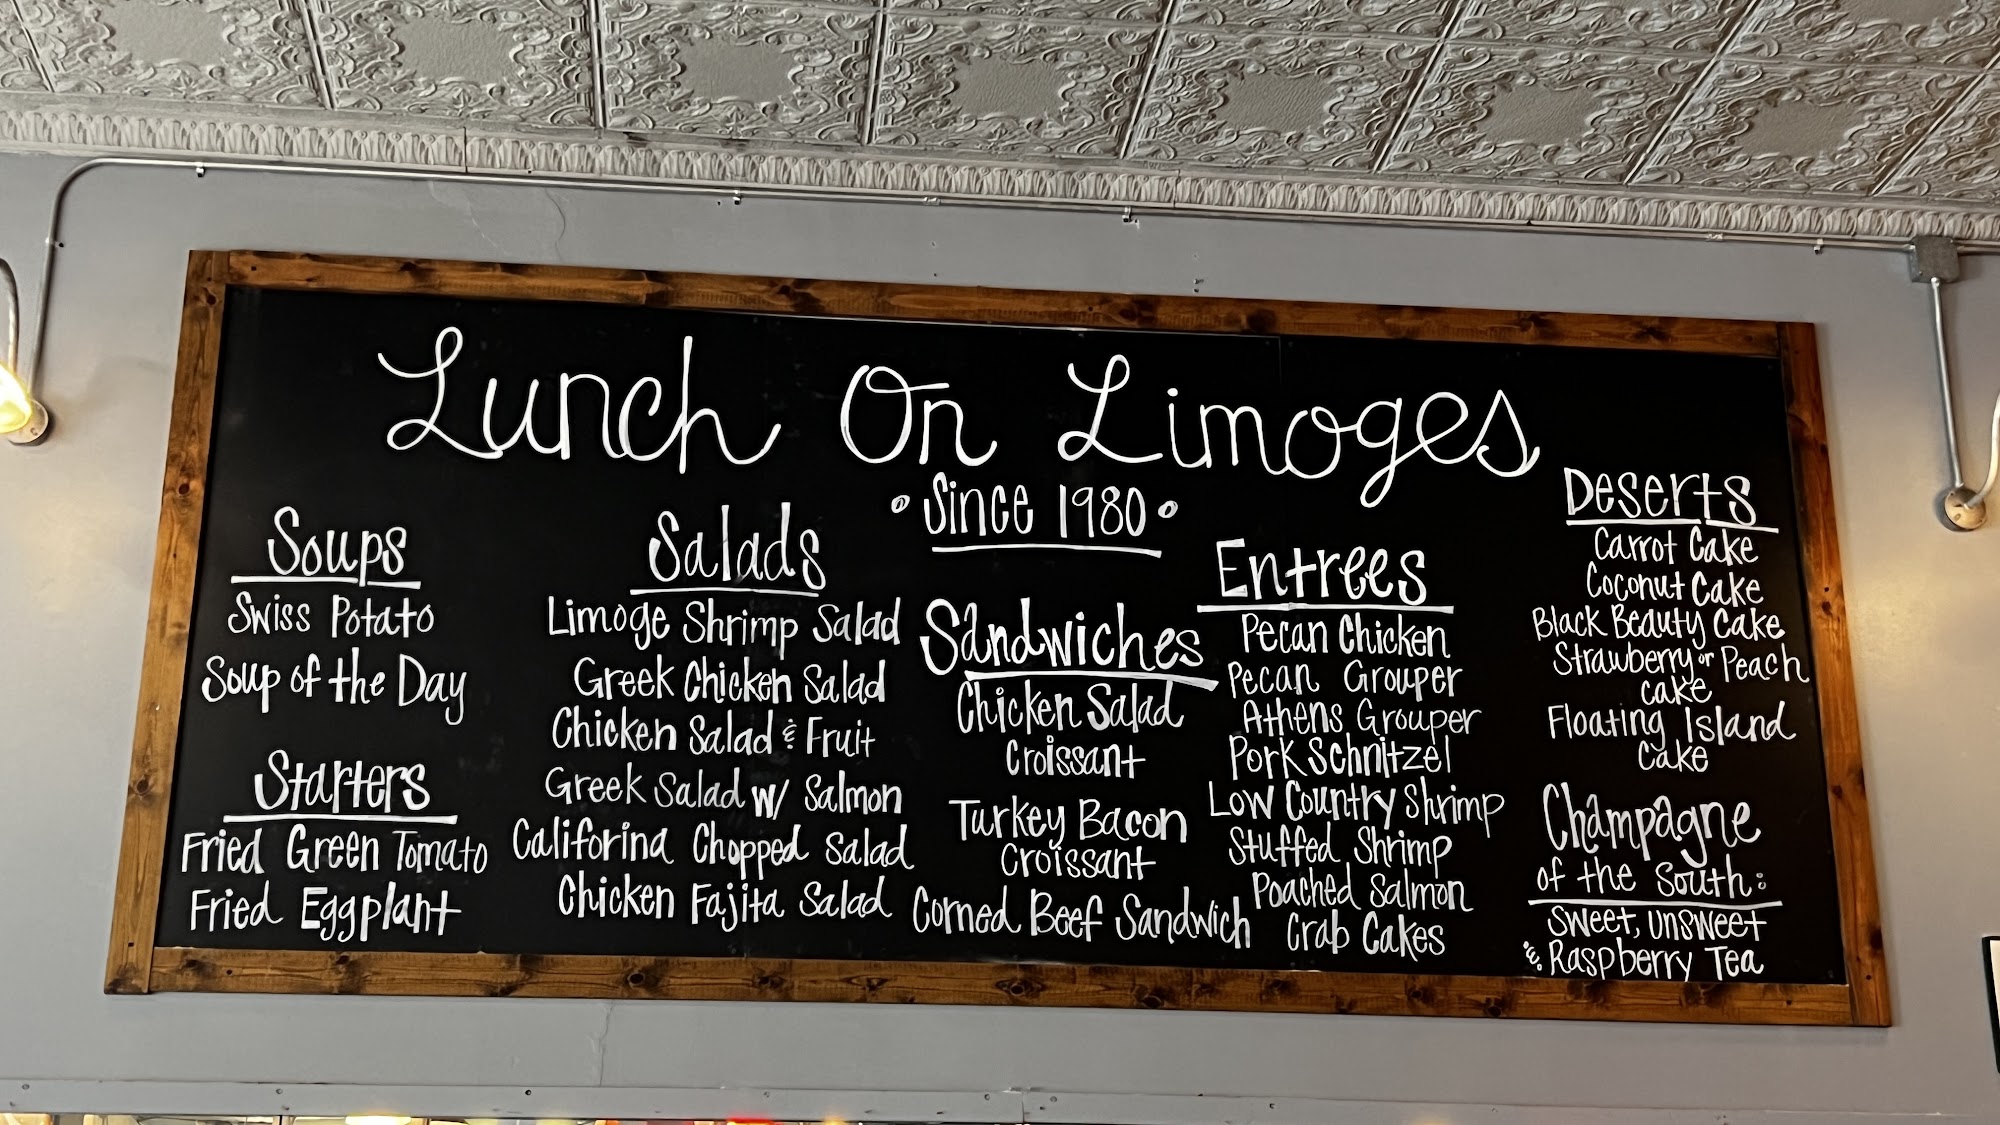 Lunch On Limoges
Since 1980
Soups
Swiss Potato
Soup of the Day
Starters
Fried Green Tomato
Fried Eggplant
Salads
Limoge Shrimp Salad
Greek Chicken Salad
Chicken Salad & Fruit
Greek Salad w/ Salmon
Califorina Chopped Salad
Chicken Fajita Salad
Sandwiches
Chicken Salad
Croissant
Turkey Bacon
Croissant
Corned Beef Sandwich
Entrees
Pecan Chicken
Pecan Grouper
Athens Grouper
Pork Schnitzel
Low Country Shrimp
Stuffed Shrimp
Poached Salmon
Crab Cakes
Deserts
Carrot Cake
Coconut Cake
Black Beauty Cake
Strawberry or Peach
cake
Floating Island
Cake
Champagne
of the South:
Sweet, Unsweet
&. Raspberry Tea